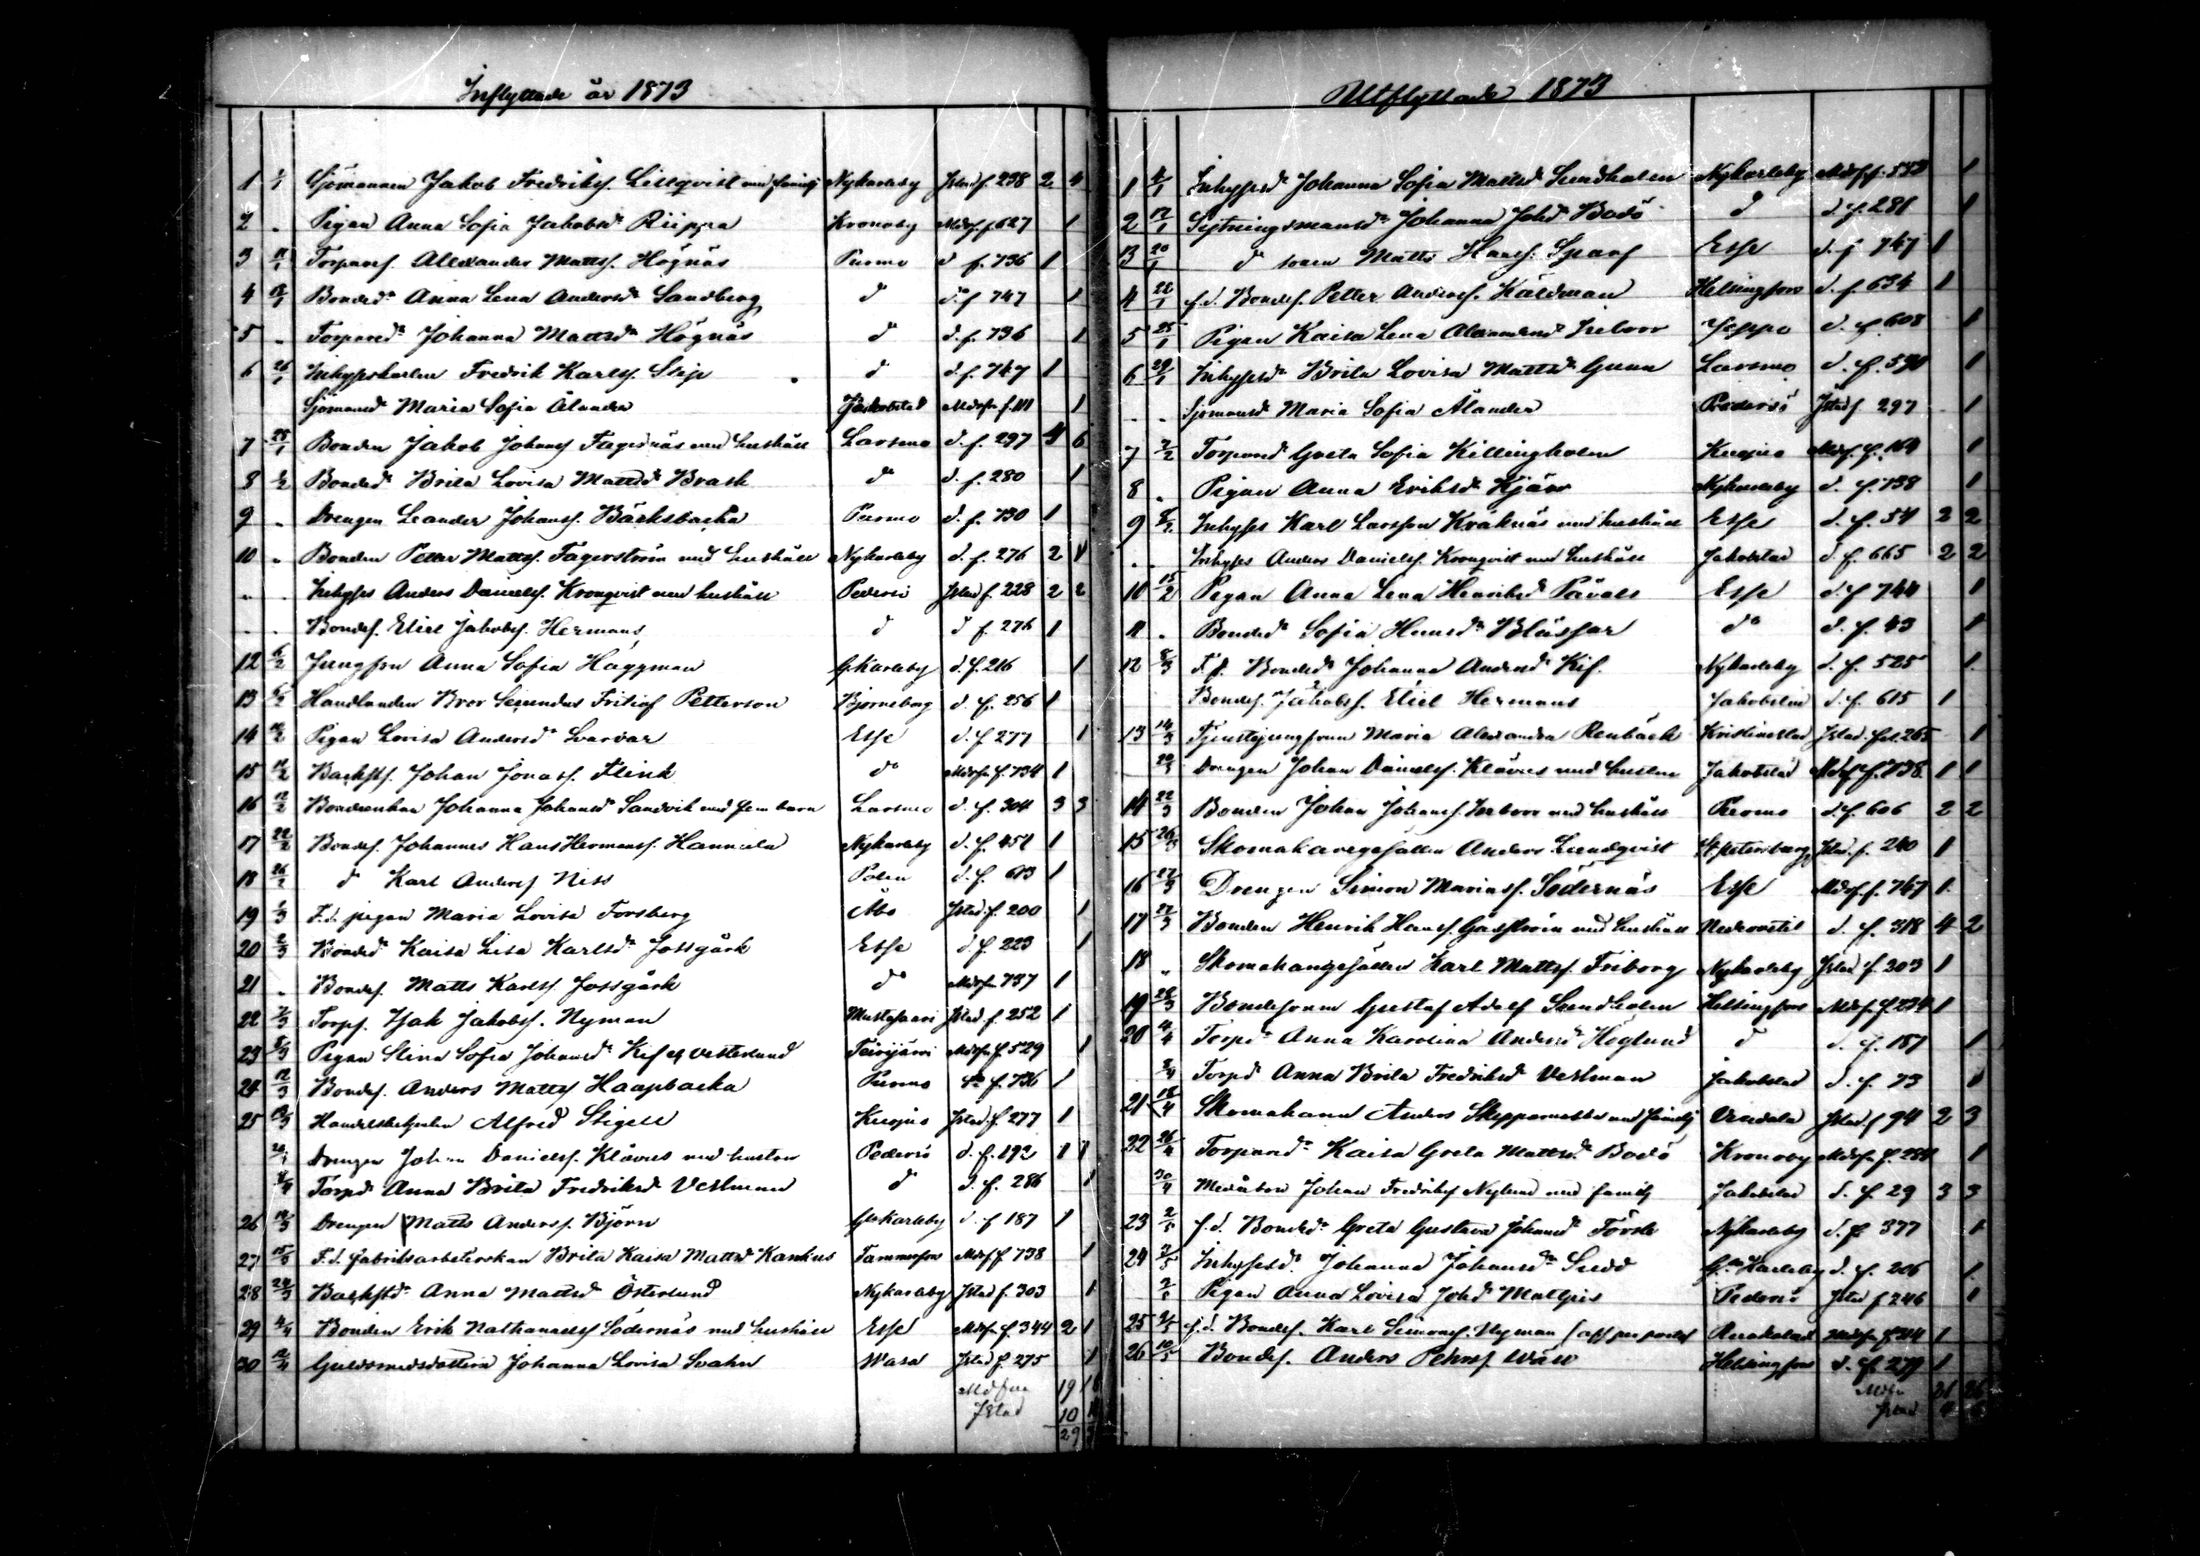 Inflyttade år 1873
1 Sjömannen Jakob Fredriks. Lillqvist med familj Nykarleby Jstad f. 298 2 4
2 " Pigan Anna Sofia Jakobsd. Riippa Kronoby Mdsf. f 627 1
3 Torpares. Alexander Matts. Högnäs Purmo d f. 736 1
4 Bonded. Anna Lena Andersd. Sandberg d d. f 747 1
5 " Torpared. Johanna Mattsd. Högnäs d d. f. 736 1
6 26/1 Inhyseskarlen Fredrik Karls. Slip d d. f. 747 1
Sjömansd Maria Sofia Ålander Jakobstad Mdsfn f. 111 1
7 28/1 Bonden Jakob Johans. Fagernäs med hushåll Larsmo d. f. 297 4 6
8 Bonded. Brita Lovisa Mattsd. Brask d d. f. 280 1
9 " Drengen Leander Johans. Bäcksbacka Purmo d. f. 730 1
10 " Bonden Petter Matts. Fagerström med hushåll Nykarleby d. f. 276 2 1
" " Inhyses Anders Daniels. Kronqvist med hushåll Pedersö Jstad f. 228 2 2
" " Bondes. Eliel Jakobs. Hermans d d f. 276 1
12 6/2 Jungfru Anna Sofia Häggman G.Karleby d. f. 216 1
13 Handlanden Bror Secundus Fritiof Petterson Björneborg d. f. 256 1
14 Pigan Lovisa Andersd. Svarvar Esse d. f. 277 1
15 Backsts. Johan Jonas. Flink do Mdsfn f. 734 1
16 12/2 Bondeenkan Johanna Johansd. Sandvik med fem barn Larsmo d. f. 304 3 3
17 22/2 Bondes. Johannes Hans Hermans. Hannula Nykarleby d. f. 451 1
18 26/2 d Karl Anders. Niss d. f. 673 1
19 1/3 F.d. pigan Maria Lovisa Forsberg Åbo Jstad f. 200 1
20 2/3 Bonded Kaisa Lisa Karlsd. Jossgärk Esse d f. 223 1
21 " Bondes. Matts Karls. Jossgärk do Mdsfn 737 1
22 7/3 Torps. Isak Jakobs. Nyman Mustasaari Jstad f. 252 1
23 8/3 Pigan Stina Sofia Johansd. Kif Vesterlund Mdsfn f. 529 1
24 12/3 Bondes. Anders Matts. Haapbacka Purmo f. 736 1
25 13/3 Handelsbetjenten Alfred Stigell Kuopio Jstad f. 277 1
Drengen Johan Daniels. Klåvus med hustru Pedersö d. f. 192 1 1
Torpd. Anna Brita Fredriksd. Vestman d d. f. 286 1
26 14/3 Drengen Matts Anders. Björn G.karleby d. f 187 1
27 15/3 F.d. fabriksarbeterskan Brita Kaisa Mattsd. Kankus Tammerfors Mdsf f 738 1
28 29/3 Backstd. Anna Mattsd Österlund Nykarleby Jstad f. 303 1
29 4/4 Bonden Erik Nathanaels. Södernäs med hushåll Esse Mdsfn f. 344 2 1
30 12/4 Guldsmedsdottern Johanna Lovisa Svahn Wasa Jstad f. 275 1
Mdsfn 19 16
Jstad 10
29
Utflyttade 1873
1 4/1 Inhysesd. Johanna Sofia Mattsd Sundholm Nykarleby Mdsf f. 553 1
2 17/1 Johanna Johd. Bodö d d. f. 281 1
3 20/1 d sonen Matts Hans. Sparf Esse d. f 747 1
4 22/1 f.d. Bondes. Petter Anders. Käldman Helsingfors d. f. 634 1
5 25/1 Pigan Kaisa Lena Alexandersd. Jeppo d. f. 608 1
6 29/1 Inhysesd Brita Lovisa Mattsd. Gunn Larsmo d. f. 590 1
" " Sjömansd Maria Sofia Ålander Pedersö Jstad f 297 1
7 2/2 Torpared Greta Sofia Killingholm Kuopio Mdsf. f. 164 1
8 " Pigan Anna Eriksd. Kjäer Nykarleby d. f. 138 1
9 8/2 Inhyses Karl Larsson Kråknäs med hushåll Esse d. f. 54 2 2
" " Inhyses Anders Daniels. Kronqvist med hushåll Jakobstad d f. 665 2 2
10 15/2 Pigan Anna Lena Henriksd. Påvals Esse d. f 744 1
11 " Bonded. Sofia Hansd. Blåssar do d. f. 43 1
12 8/3 F.d. Bonded. Johanna Andersd. Kif Nykarleby d. f. 525 1
Bondes. Jakobs. Eliel Hermans Jakobstad d. f. 615 1
13 14/3 Tjenstejungfrun Maria Alexandra Renbäck Kristinestad Jstad fol. 265 1
Drengen Johan Daniels. Klåvus med hustru Jakobstad Mdsf f. 738 1 1
14 22/3 Bonden Johan Johans. med hushåll Purmo d. f. 606 2 2
15 26/3 Skomakaregesällen Anders Lundqvist St. petersburg Jstad. f. 240 1
16 27/3 Drengen Simon Marias. Södernäs Esse Mdsf. f. 747 1
17 27/3 Bonden Henrik Hans. Gäsström med hushåll Nedervetil d. f. 318 4 2
18 " Skomakaregesällen Karl Matts. Friborg Nykarleby Jstad f. 303 1
19 28/3 Bondesonen Gustaf Adolf Sundholm Helsingfors Mdsf. f. 234 1
20 4/4 Torpd Anna Karolina Andersd. Höglund d d. f. 187 1
Torpd Anna Brita Fredriksd Vestman Jakobstad d. f. 73 1
21 18/4 Skomakaren Anders med familj Jstad. f 94 2 3
22 26/4 Torpared. Kaisa Greta Mattsd. Bodö Kronoby Mdsfn f. 281 1
30/4 Johan Fredriks. Nylund med familj Jakobstad d. f. 29 3 3
23 f.d. Bonded. Greta Gustava Johansd. Förste Nykarleby d. f 377 1
24 Inhysesd. Johanna Johansd. Sedd G. Karleby d. f. 206 1
Pigan Anna Lovisa Johd. Pedersö Jstad f 246 1
25 f.d. Bondes. Karl Simons. Nyman Mdsfn f. 214 1
26 10/5 Bondes. Anders Pehrs. Wäll Helsingfors d. f. 279 1
Mdsfn
Jstad